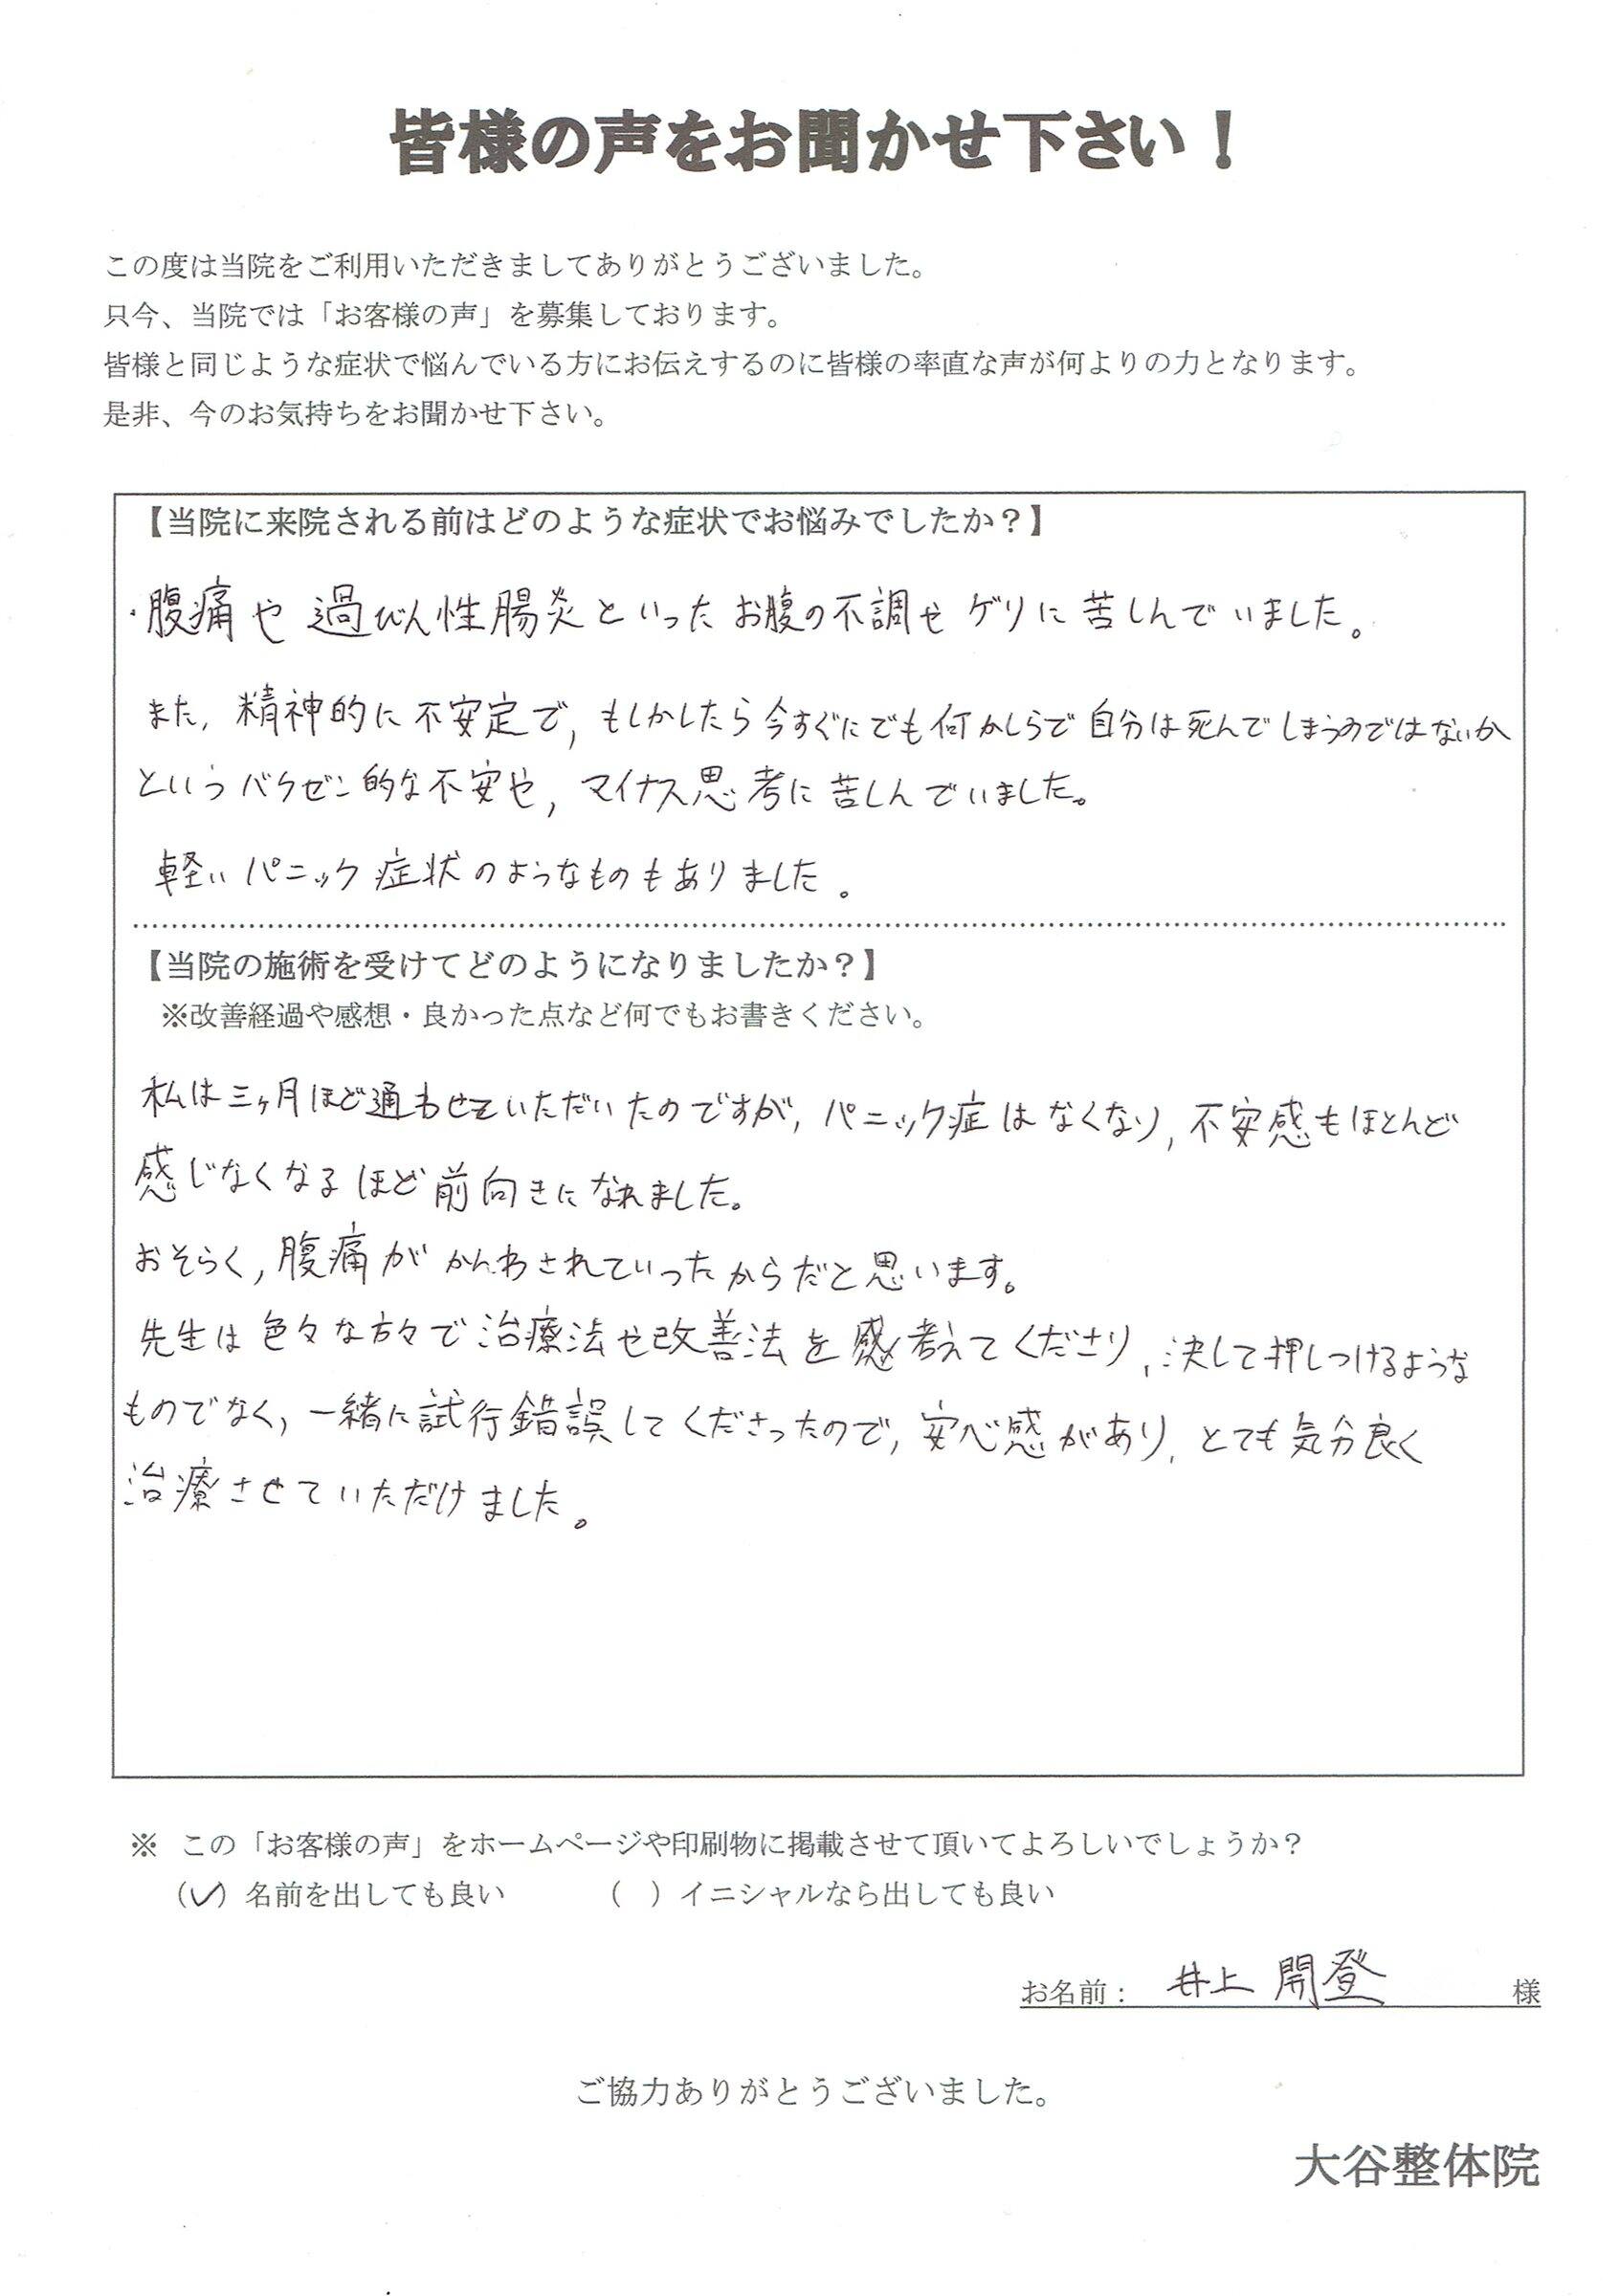 皆様の声をお聞かせ下さい！
この度は当院をご利用いただきましてありがとうございました。
只今、当院では「お客様の声」を募集しております。
皆様と同じような症状で悩んでいる方にお伝えするのに皆様の率直な声が何よりの力となります。
是非、今のお気持ちをお聞かせ下さい。
【当院に来院される前はどのような症状でお悩みでしたか？】
・腹痛や過びん性腸炎といったお腹の不調やゲリに苦しんでいました。
また, 精神的に不安定で, もしかしたら今すぐにでも何かしらで自分は死んでしまうのではないか
というバクゼン的な不安や, マイナス思考に苦しんでいました。
軽いパニック症状のようなものもありました。
【当院の施術を受けてどのようになりましたか？】
※改善経過や感想・良かった点など何でもお書きください。
私は三ヶ月ほど通わせていただいたのですが, パニック症はなくなり, 不安感もほとんど
感じなくなるほど前向きになれました。
おそらく, 腹痛がかんわされていったからだと思います。
先生は色々な方々で治療法や改善法を考えてくださり, 決して押しつけるような
ものでなく, 一緒に試行錯誤してくださったので, 安心感があり, とても気分良く
治療させていただけました。
※ この「お客様の声」をホームページや印刷物に掲載させて頂いてよろしいでしょうか？
（✓）名前を出しても良い （ ）イニシャルなら出しても良い
お名前： 井上 開登 様
ご協力ありがとうございました。
大谷整体院